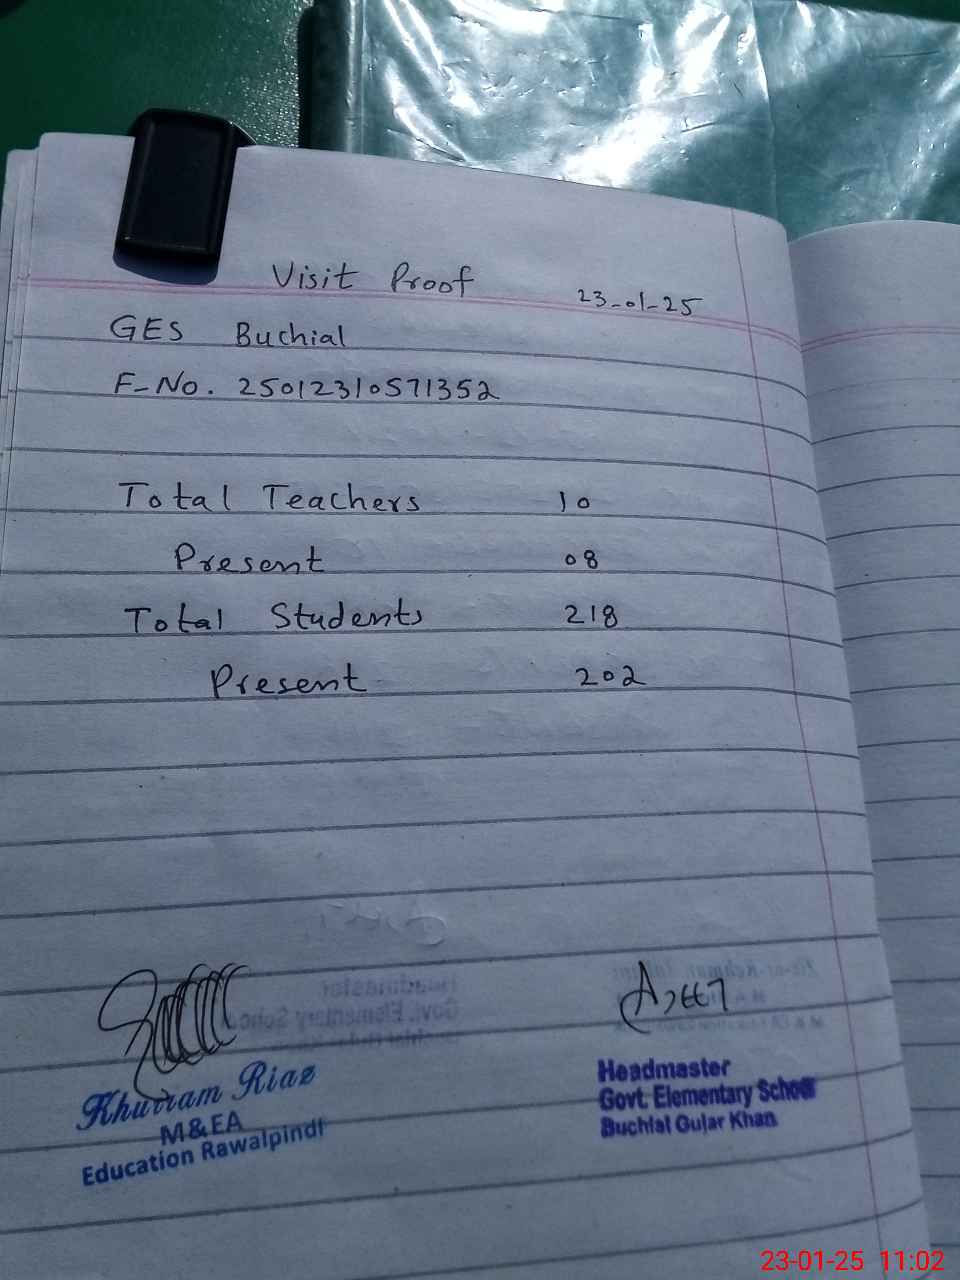 Visit Proof 23-01-25
GES Buchial
F-No. 25012310571352
Total Teachers 10
Present 08
Total Students 218
Present 202
Khurram Riaz
M&EA
Education Rawalpindi
Headmaster
Govt. Elementary School
Buchial Gujar Khan
23-01-25 11:02